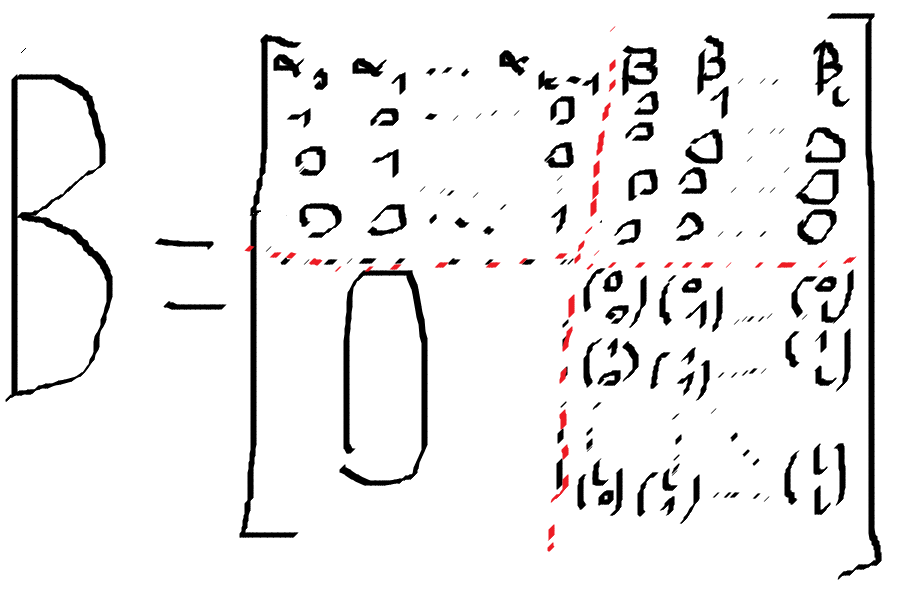 B = [ α₀ α₁ ... α k-1 β₀ β₁ ... β ι
1 0 ... 0 0 0 ... 0
0 1 0 0 0 ... 0
0 0 ... 1 0 0 ... 0
0 (0 0) (0 1) ... (0 ι)
(1 0) (1 1) ... (1 ι)
(ι 0) (ι 1) ... (ι ι) ]